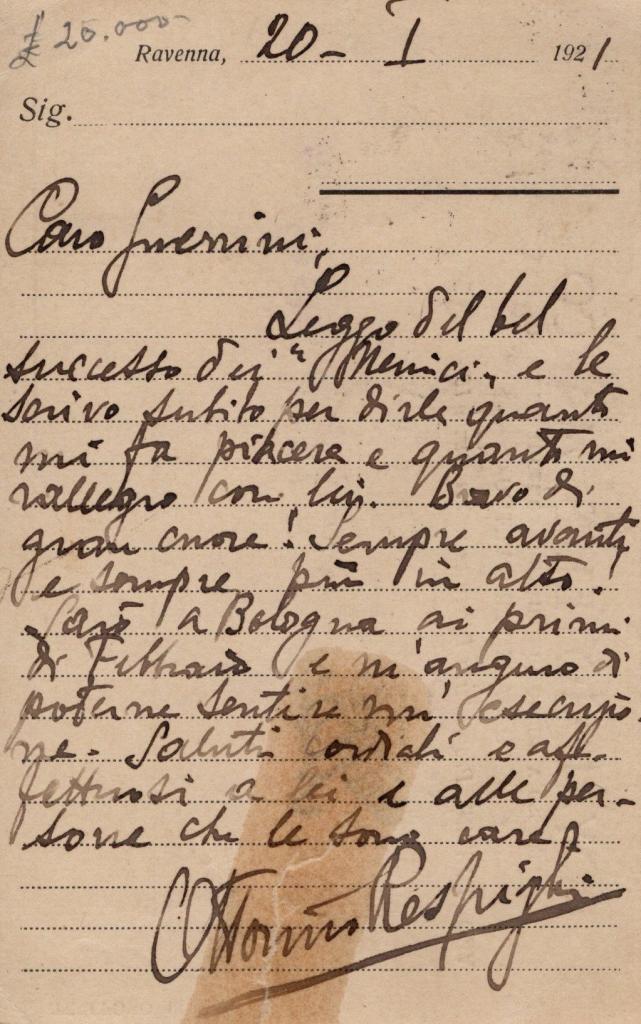 ₤ 20.000-
Ravenna, 20 - I 1921
Sig.
Caro Guerrini,
Leggo del bel
successo dei "Nemici" e le
scrivo subito per dirle quanto
mi fa piacere e quanto mi
rallegro con lei. Bravo di
gran cuore! Sempre avanti,
e sempre più in alto!
Sarò a Bologna ai primi
di Febbraio e m'auguro di
poterne sentire un'esecuzio-
ne - Saluti cordiali e af-
fettuosi a lei e alle per-
sone che le sono care
Ottorino Respighi